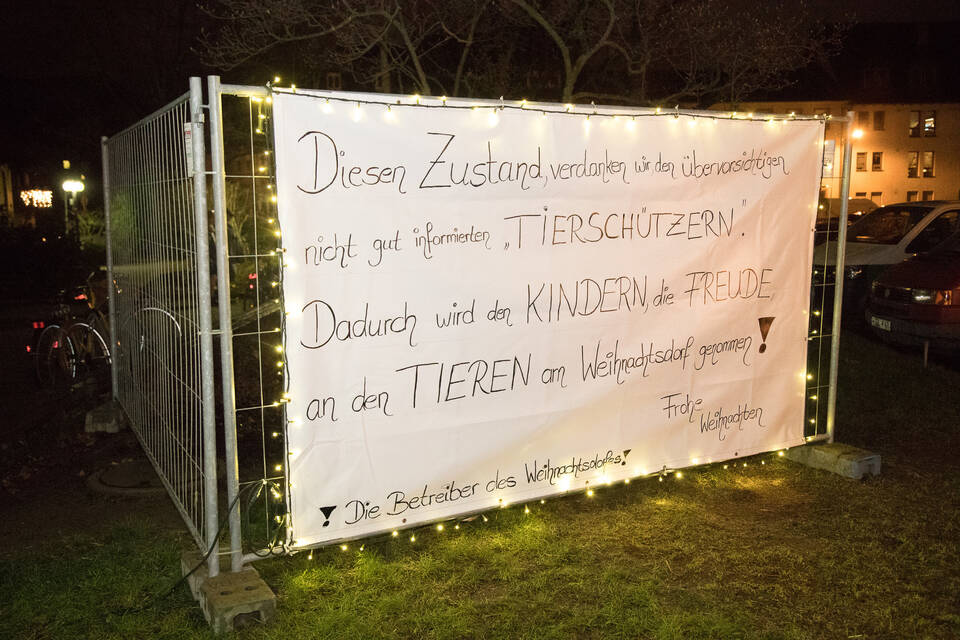 Diesen Zustand, verdanken wir, den übervorsichtigen
nicht gut informierten „TIERSCHÜTZERN".
Dadurch wird den KINDERN, die FREUDE,
an den TIEREN am Weihnachtsdorf genommen!
Frohe
Weihnachten
! Die Betreiber des Weihnachtsdorfes!